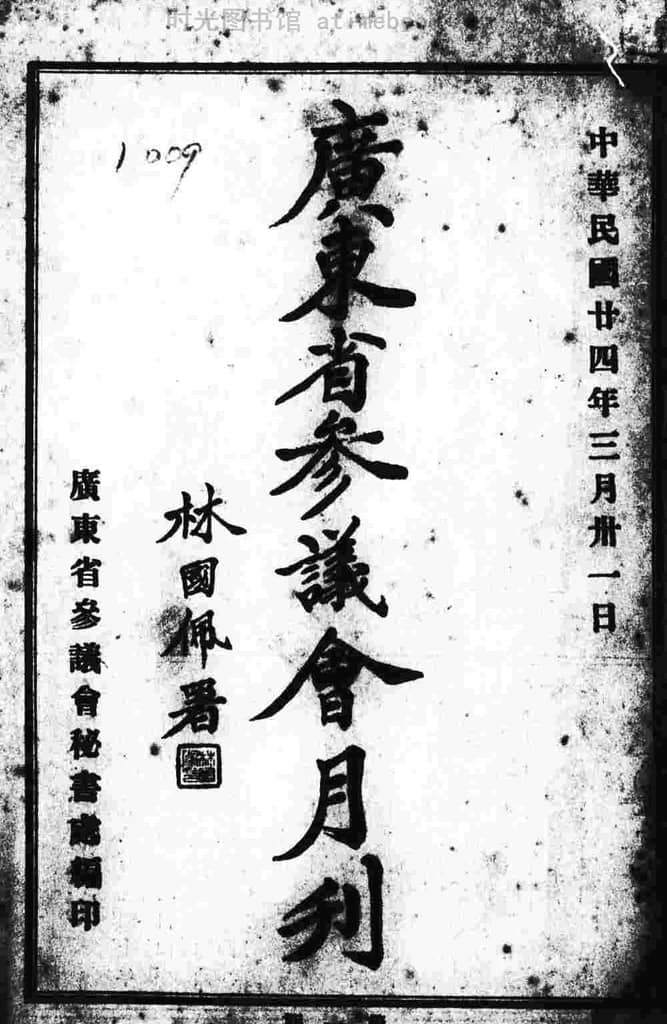 时光图书馆
中華民國廿四年三月卅一日
廣東省參議會月刊
林國佩署
廣東省參議會秘書處編印
1009